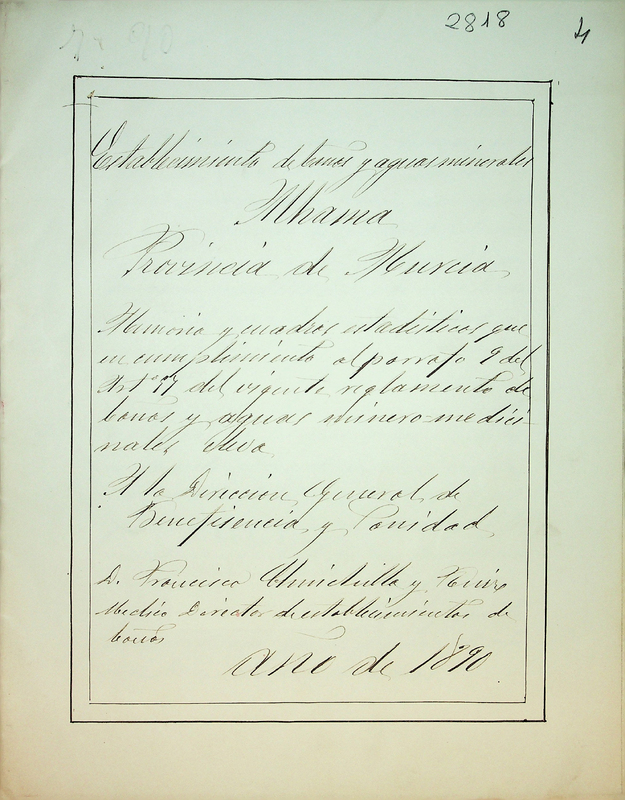 2818
4
Establecimiento de banos y aguas minerales
Alhama
Provincia de Murcia
Memoria y cuadros estadisticos que
en cumplimiento al parrafo 9 del
Artº 57 del vigente reglamento de
banos y aguas minero-medici-
nales eleva
A la Direccion General de
Beneficencia y Sanidad
D. Francisco Chinchilla y Ruiz
Medico Director de establecimientos de
banos
año de 1890